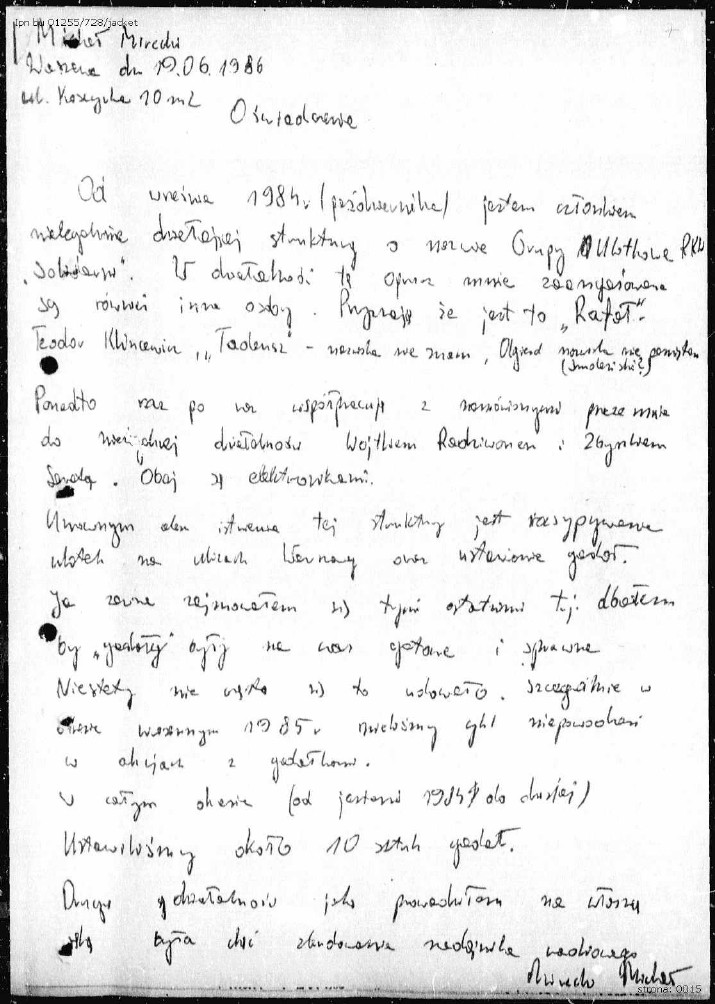 Ipn bu 01255/728/jacket
Michał Mirecki
Warszawa dn 19.06.1986
ul. 10 m 2
Oświadczenie
Od września 1984r (października) jestem członkiem
nielegalnie działającej struktury o nazwie Grupy Ulotkowe RKW
„Solidarność”. W działalność tę oprócz mnie zaangażowane
są również inne osoby. Przyznaję że jest to „Rafał”.
Teodor Klincewicz, „Tadeusz” - nazwiska nie znam, Olgierd nazwiska nie pamiętam
(Smoleński?)
Ponadto raz po raz współpracuję z namówionymi przeze mnie
do niezależnej działalności Wojtkiem Radziwonem i Zbyszkiem
Obaj są elektronikami.
celem istnienia tej struktury jest rozsypywanie
ulotek na ulicach Warszawy oraz ustawianie gadał.
Ja zajmowałem się tymi ostatnimi tj. dbałem
by „gadały” były na czas gotowe i sprawne
Niestety nie często się to udawało. Szczególnie w
okresie wiosennym 1985r mieliśmy cykl niepowodzeń
w akcjach z gadałkami.
W całym okresie (od jesieni 1984 do dzisiaj)
Ustawiliśmy około 10 sztuk gadał.
Drugą działalnością jaką prowadziłem na własną
rękę była chęć zbudowania nadajnika radiowego
Mirecki Michał
strona: 0015